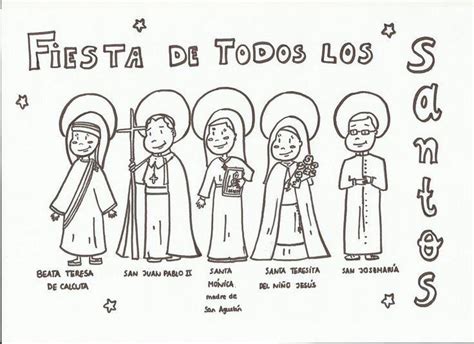 FIESTA DE TODOS LOS
SANTOS
BEATA TERESA
DE CALCUTA
SAN JUAN PABLO II
SANTA
MÓNICA
madre de
San Agustín
SANTA TERESITA
DEL NIÑO JESÚS
SAN JOSEMARÍA